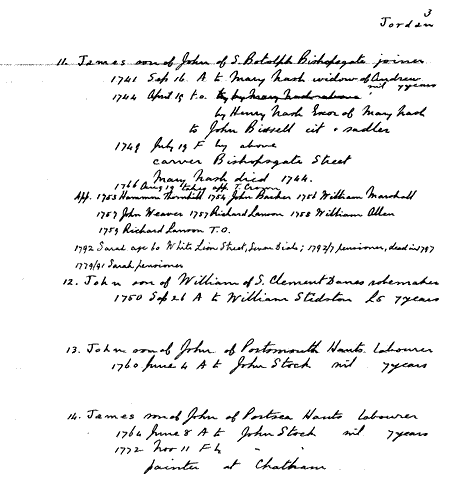 3
Jordan
11. James son of John of S. Botolph Bishopsgate joiner
1741 Sep 16. A to Mary Nash widow of Andrew
nil 7 years
1744 April 19 T.O. by Mary Nash above
by Henry Nash Exor of Mary Nash
to John Bissell cit & sadler
1749 July 19 F by above
carver Bishopsgate Street
Mary Nash died 1744.
1766 Aug 19 taking app. T.
App. 1753 Hammon Thornhill 1754 John Barker 1756 William Marshall
1757 John Weaver 1757 Richard Lawson 1758 William Allen
1759 Richard Lawson T.O.
1792 Sarah age 60 White Lion Street, Seven Dials; 1792/7 pensioner, died in 1797
1779/91 Sarah pensioner
12. John son of William of S. Clement Danes robemaker
1750 Sep 26 A to William Stedston £5 7 years
13. John son of John of Portsmouth Hants labourer
1760 June 4 A to John Stock nil 7 years
14. James son of John of Portsea Hants labourer
1764 June 8 A to John Stock nil 7 years
1772 Nov 11 F by " "
painter at Chatham